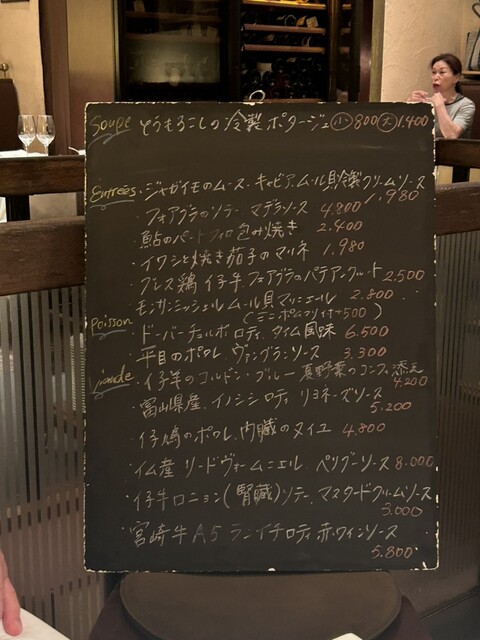 Soupe とうもろこしの冷製ポタージュ ㊛小 800 大 1.400
Entrées ・ジャガイモのムース、キャビア、ムール貝冷製クリームソース
1.980
・フォアグラのソテー、マデラソース 4.800
・鮎のパートフィロ包み焼き 2.400
・イワシと焼き茄子のマリネ 1.980
・ブレス鶏、仔牛、フォアグラのパテアンクルート 2.500
・モンサンミッシェル ムール貝マリニエール 2.800
(ミニポムフリット付+500)
Poisson ・ドーバーチュルボ ロティ、タイム風味 6.500
・平目のポワレ、ヴァンブランソース 3.300
Viande ・仔羊のコルドン・ブルー 夏野菜のコンフィ添え
4.200
・富山県産、イノシシ ロティ リヨネーズソース
5.200
・仔鳩のポワレ、内臓のヌイユ 4.800
・仏産 リードヴォームニエル ペリグーソース 8.000
・仔牛ロニョン(腎臓)ソテー、マスタードクリームソース
3.000
・宮崎牛A5ランイチロティ 赤ワインソース
5.800